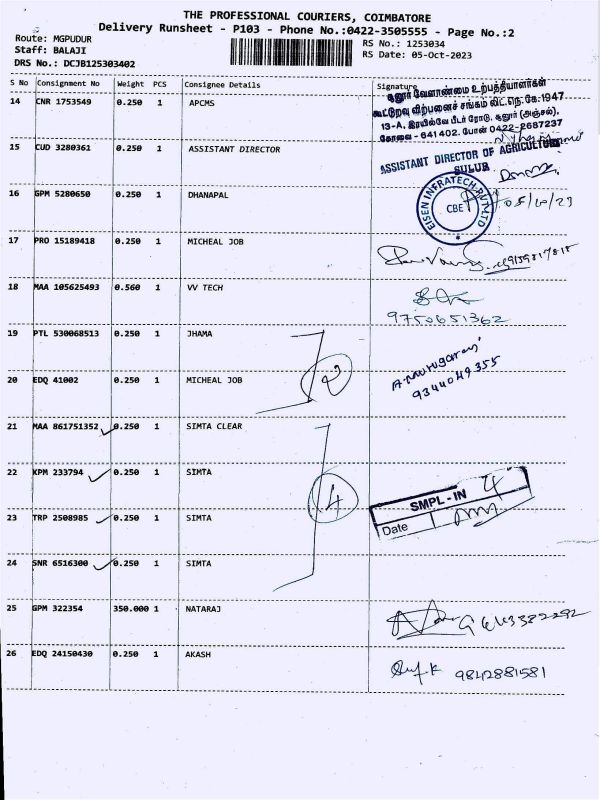 THE PROFESSIONAL COURIERS, COIMBATORE
Delivery Runsheet - P103 - Phone No.:0422-3505555 - Page No.:2
Route: MGPUDUR
Staff: BALAJI
DRS No.: DCJB125303402
RS No.: 1253034
RS Date: 05-Oct-2023
S No Consignment No Weight PCS Consignee Details Signature
14 CNR 1753549 0.250 1 APCMS
சூலூர் வேளாண்மை உற்பத்தியாளர்கள்
கூட்டுறவு விற்பனைச் சங்கம் லிட்.நெ.கே.1947
13-A, இரயில்வே பீடர் ரோடு, சூலூர் (அஞ்சல்),
கோவை - 641402. போன் 0422-2687237
15 CUD 3280361 0.250 1 ASSISTANT DIRECTOR
ASSISTANT DIRECTOR OF AGRICULTURE
SULUR
16 GPM 5280650 0.250 1 DHANAPAL
EISEN INFRATECH PVT LTD
CBE
05/10/23
17 PRO 15189418 0.250 1 MICHEAL JOB
18 MAA 105625493 0.560 1 VV TECH
9750651362
19 PTL 530068513 0.250 1 JHAMA
2
20 EDQ 41002 0.250 1 MICHEAL JOB
9344049355
21 MAA 861751352 0.250 1 SIMTA CLEAR
22 KPM 233794 0.250 1 SIMTA
4
SMPL - IN 4
Date
23 TRP 2508985 0.250 1 SIMTA
24 SNR 6516300 0.250 1 SIMTA
25 GPM 322354 350.000 1 NATARAJ
26 EDQ 24150430 0.250 1 AKASH
9842881581